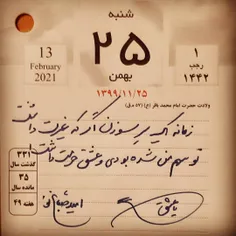 شنبه
13
February
2021
۲۵
بهمن
۱
رجب
۱۴۴۲
۱۳۹۹/۱۱/۲۵
ولادت حضرت امام محمد باقر (ع) (۵۷ ه‍.ق)
زمانه اگر سر سوزن اگر که غیرت داشت
تو سهم من شده بودی و عشق حرمت داشت
۳۳۱
گذشت سال
۳۵
مانده سال
هفته ۴۹
یا عشق